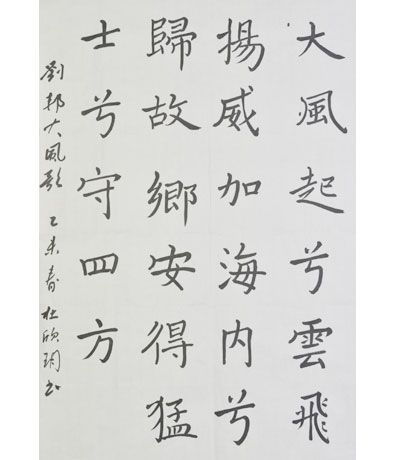 大風起兮雲飛
揚威加海内兮
歸故鄉安得猛
士兮守四方
劉邦大風歌 乙未春 杜欣玥书